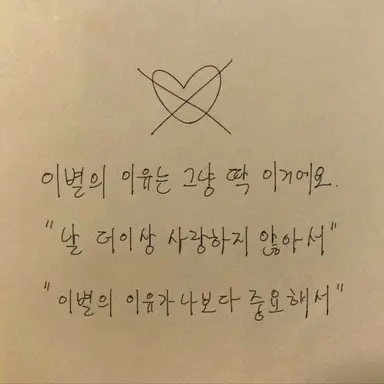 이별의 이유는 그냥 딱 이거에요.
"날 더이상 사랑하지 않아서"
"이별의 이유가 나보다 중요해서"